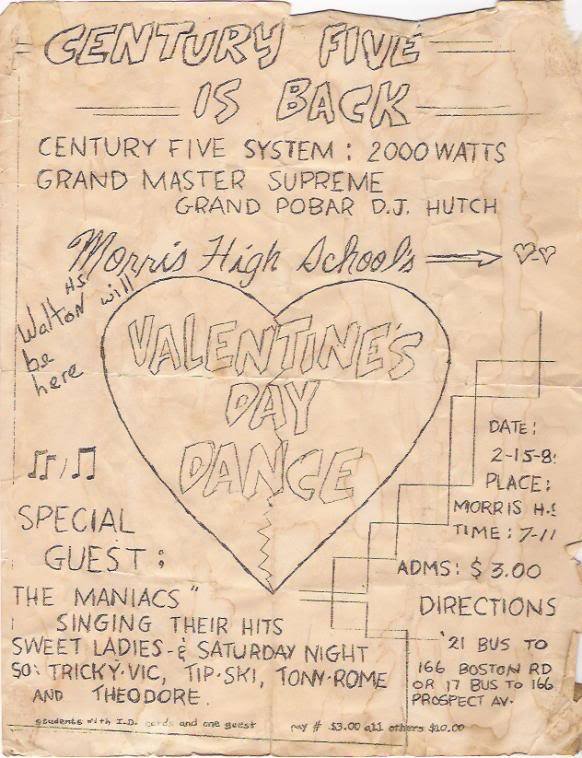 CENTURY FIVE
IS BACK
CENTURY FIVE SYSTEM: 2000 WATTS
GRAND MASTER SUPREME
GRAND POBAR D.J. HUTCH
Morris High School's
Walton HS will
be
here
VALENTINE'S
DAY
DANCE
DATE:
2-15-8
PLACE:
MORRIS H.S
TIME: 7-11
ADMS: $3.00
SPECIAL
GUEST:
THE MANIACS"
SINGING THEIR HITS
SWEET LADIES - & SATURDAY NIGHT
SO: TRICKY-VIC, TIP-SKI, TONY-ROME
AND THEODORE.
DIRECTIONS
'21 BUS TO
166 BOSTON RD
OR 17 BUS TO 166
PROSPECT AV.
students with I.D. cards and one guest pay # $3.00 all others $10.00